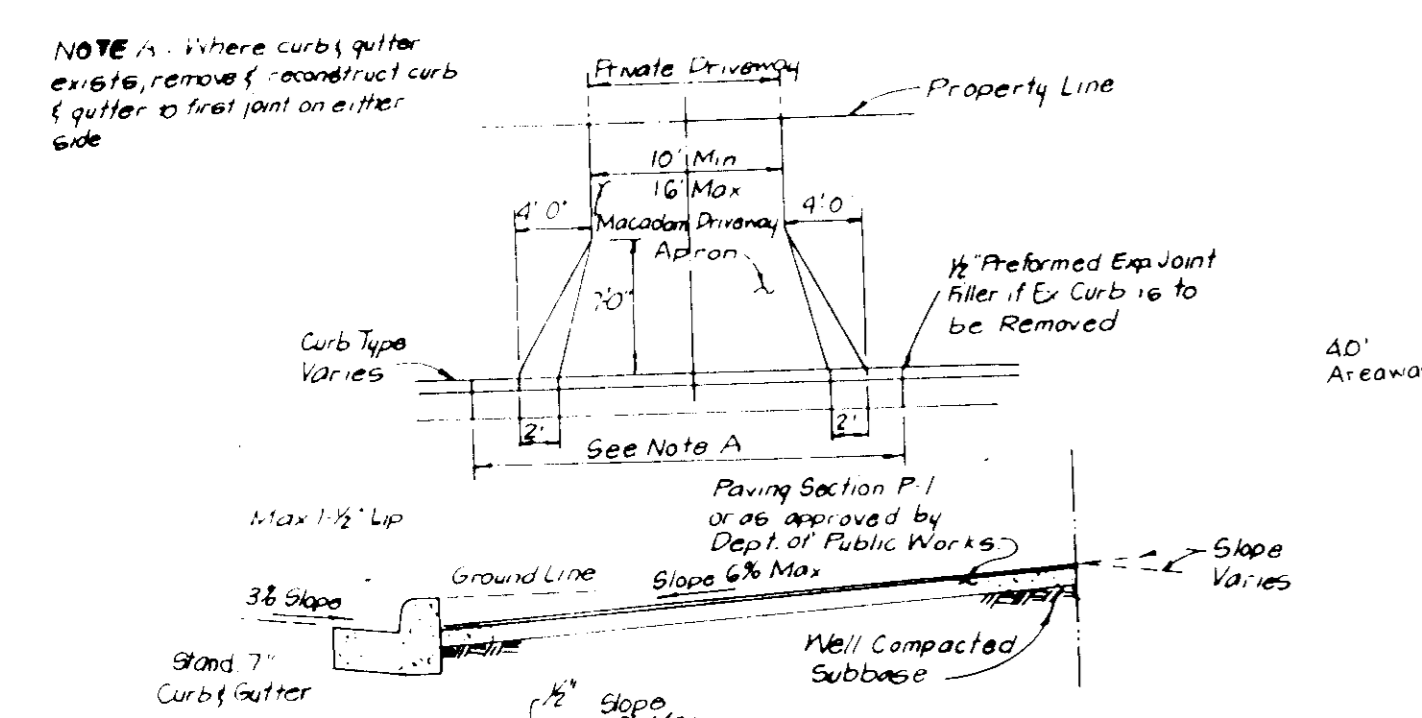 NOTE A. Where curb & gutter
exists, remove & reconstruct curb
& gutter to first joint on either
side
Private Driveway
Property Line
10' Min
16' Max
4'0"
4'0"
Macadam Driveway
Apron
7'0"
1/2" Preformed Exp Joint
Filler if Ex Curb is to
be Removed
Curb Type
Varies
4.0'
2'
2'
See Note A
Paving Section P-1
or as approved by
Dept. of Public Works.
Max 1-1/2" Lip
Ground Line
Slope 6% Max
Slope
Varies
3% Slope
Well Compacted
Subbase
Stand. 7"
Curb & Gutter
1/2"
Slope